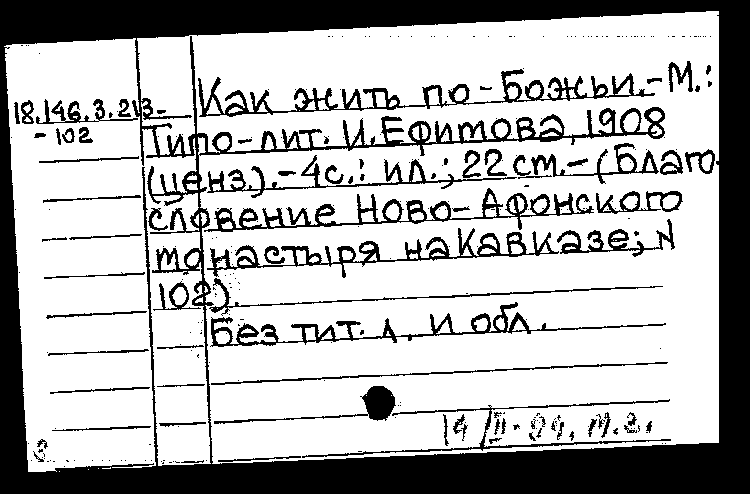 18.146.3.213-
-102
Как жить по-Божьи.-М.:
Типо-лит. И.Ефимова, 1908
(ценз.).-4с.: ил.; 22 cm.-(Благо-
словение Ново-Афонского
монастыря на Кавказе; N
102).
Без тит. л. и обл.
14/II-